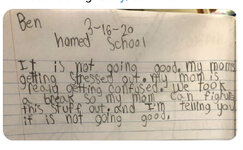 Ben
3-16-20
homed School
It is not going good. my moms
getting stressed out. my mom is
really getting confused. we took
a break so my mom can figure
this stuff out. and I'm telling you
it is not going good.